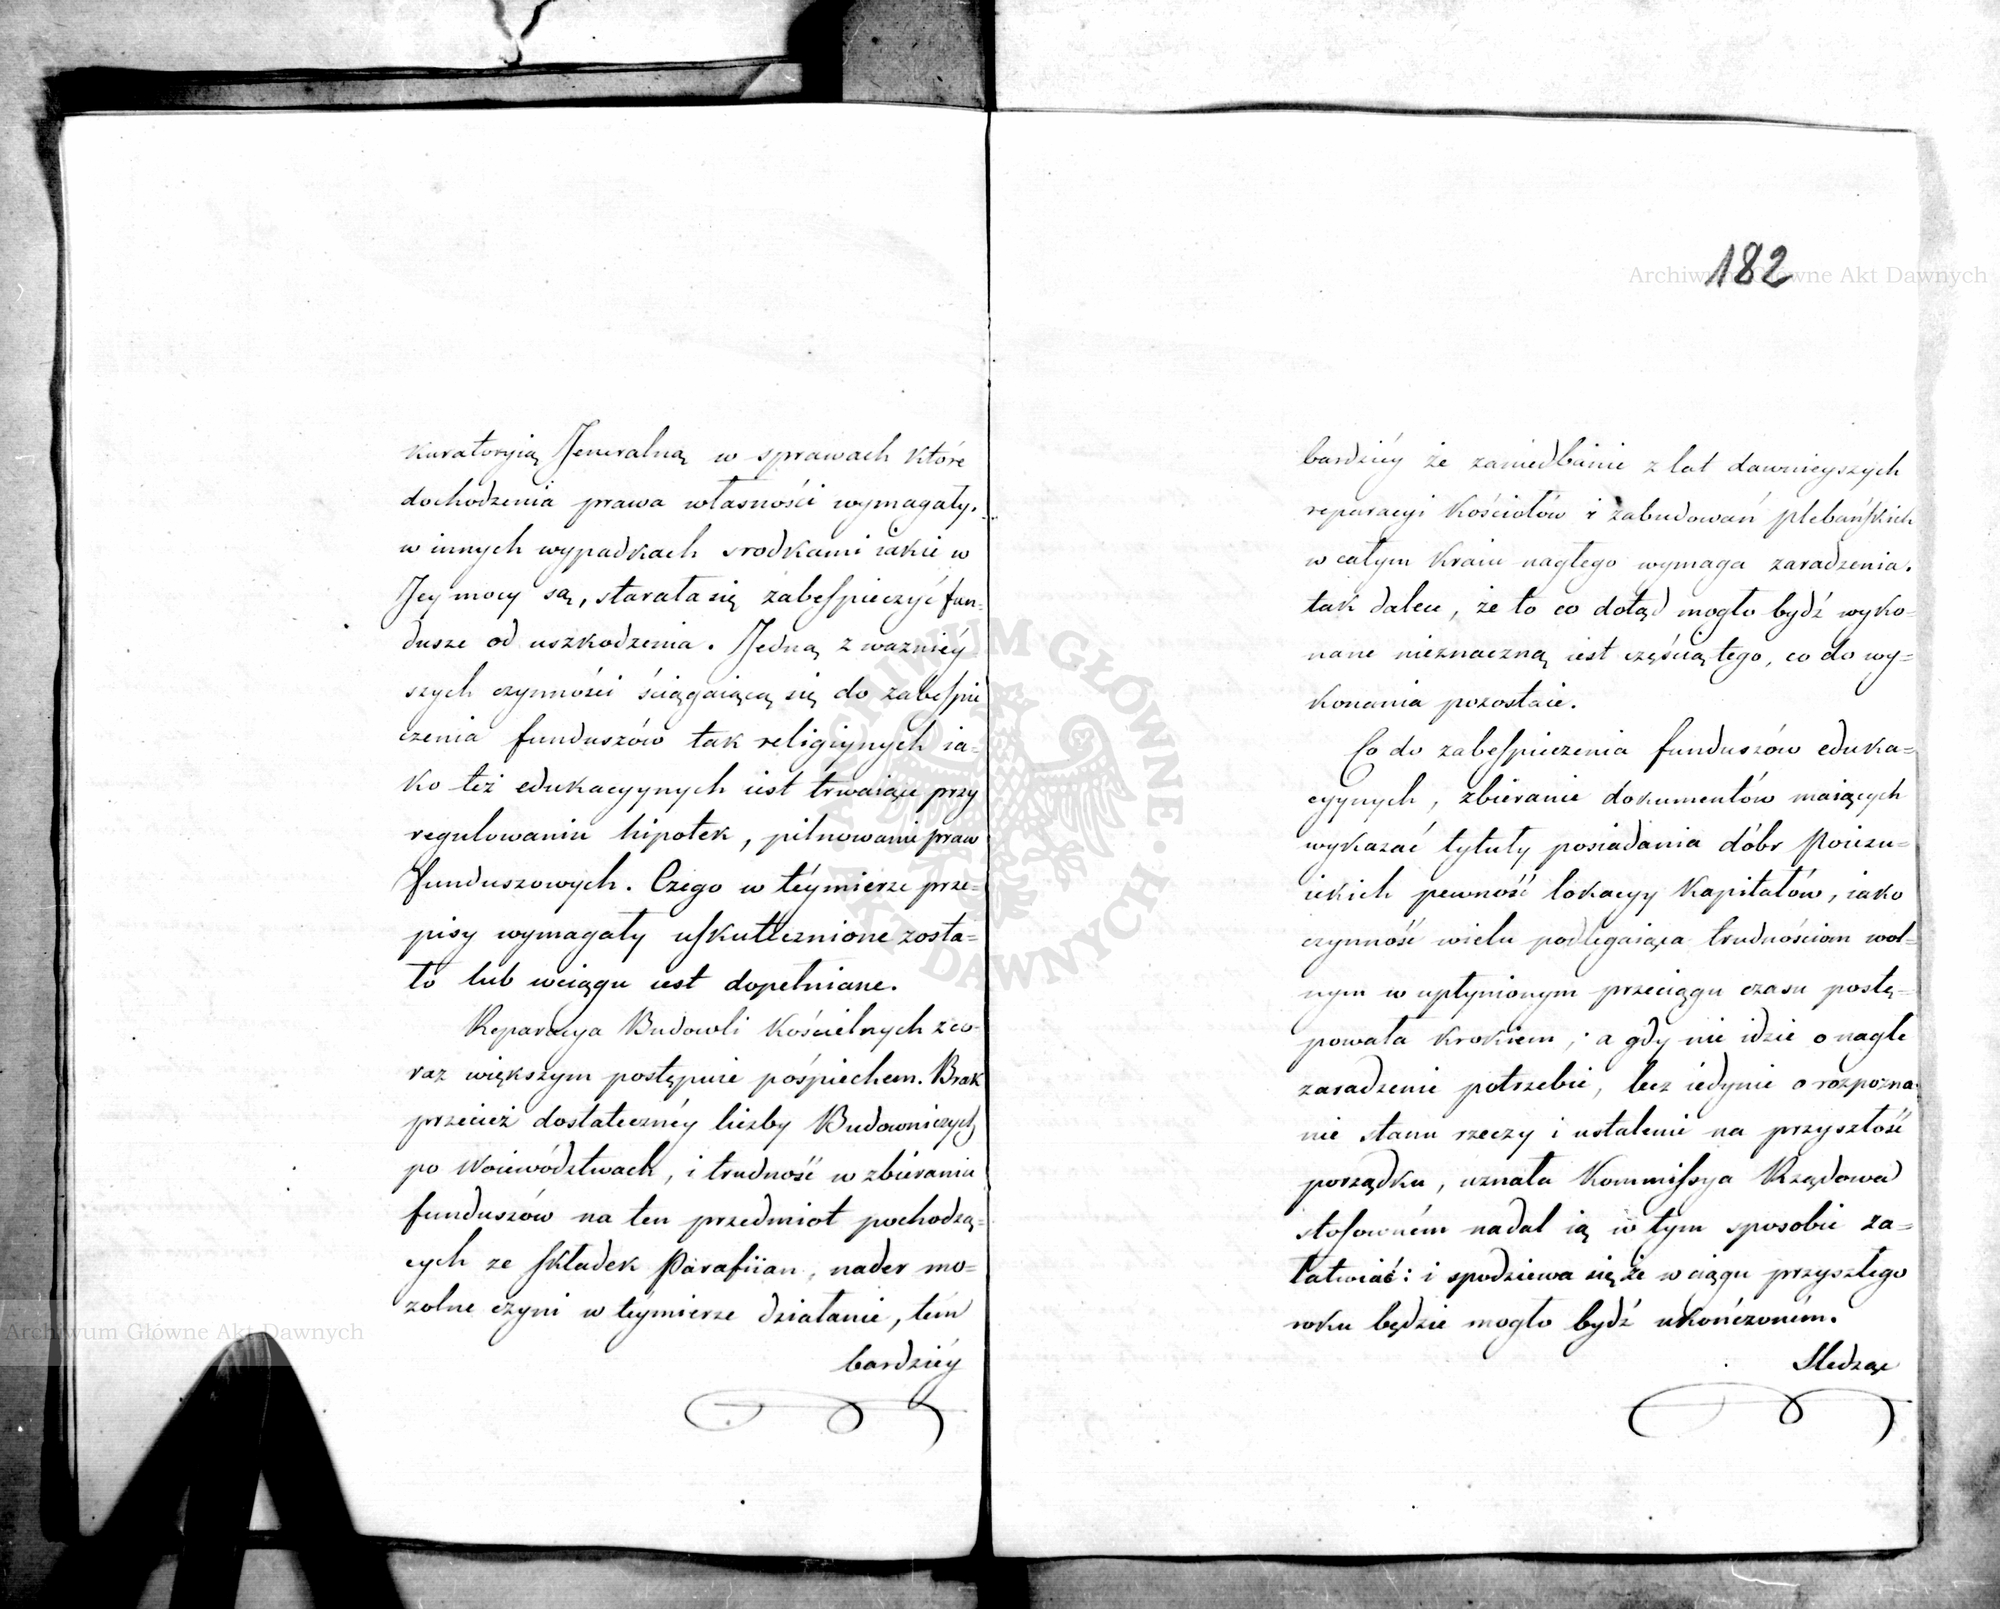 kuratoryią Jeneralną w sprawach które
dochodzenia prawa własności wymagały.
w innych wypadkach srodkami iakie w
Jey mocy są, starała się zabespieczyć fun-
dusze od uszkodzenia. Jedną z ważniéy
szych czynności ściągaiącą się do zabespie
czenia funduszów tak religiynych ia-
ko też edukacyynych iest trwaiące przy
regulowaniu hipotek, pilnowanie praw
funduszowych. Czego w téymierze prze-
pisy wymagały uskutecznione zosta-
ło lub wciągu iest dopełniane.
Reparacya Budowli Kościelnych z co-
raz większym postępuie pośpiechem. Brak
przecież dostatecznéy liczby Budowniczych
po Woiewództwach, i trudność w zbieraniu
funduszów na ten przedmiot pochodzą-
cych ze składek Parafiian, nader mo-
zolne czyni w téymierze działanie, tém
bardziéy
182
bardziéy że zaniedbanie z lat dawnieyszych
reparacyi Kościołów i zabudowań plebańskich
w całym Kraiu nagłego wymaga zaradzenia.
tak dalece, że to co dotąd mogło bydź wyko-
nane nieznaczną iest częścią tego, co do wy-
konania pozostaie.
Co do zabespieczenia funduszów eduka-
cyynych, zbieranie dokumentów maiących
wykazać tytuły posiadania dóbr Poiezu-
ickich pewność lokacyy Kapitałów, iako
czynność wielu podlegaiąca trudnościom wol-
nym w upłynionym przeciągu czasu postę-
powała krokiem; a gdy nie idzie o nagłe
zaradzenie potrzebie, lecz iedynie o rozpozna
nie stanu rzeczy i ustalenie na przyszłość
porządku, uznała Kommissya Rządowa
stosowném nadal ią w tym sposobie za-
łatwiać: i spodziewa się że w ciągu przyszłego
roku będzie mogło bydź ukończoném.
Sledząc
Archiwum Główne Akt Dawnych
Archiwum Główne Akt Dawnych
ARCHIWUM GŁÓWNE · AKT DAWNYCH ·